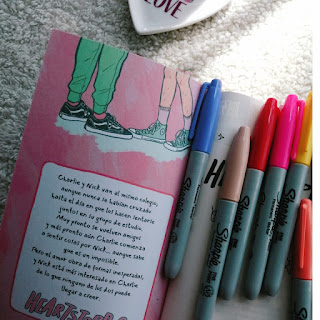 LOVE
Charlie y Nick van al mismo colegio,
aunque nunca se habían cruzado
hasta el día en que los hacen sentarse
juntos en su grupo de estudio.
Muy pronto se vuelven amigos
y más pronto aún Charlie comienza
a sentir cosas por Nick... aunque sabe
que es un imposible.
Pero el amor obra de formas inesperadas,
y Nick está más interesado en Charlie
de lo que ninguno de los dos puede
llegar a creer.
HEARTSTOPPER
Sharpie
Sharpie
Sharpie
Sharpie
Sharpie